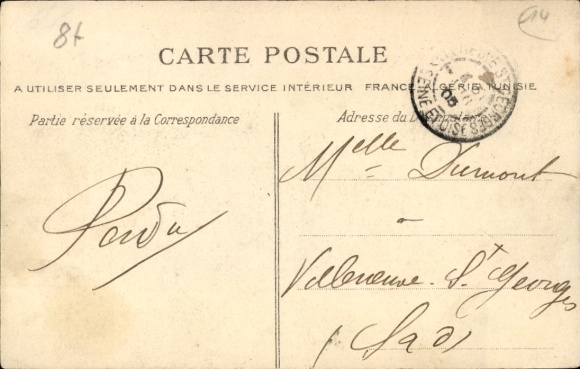 84
14
CARTE POSTALE
A UTILISER SEULEMENT DANS LE SERVICE INTÉRIEUR FRANCE, ALGÉRIE, TUNISIE
Partie réservée à la Correspondance
Adresse du
Melle Dumont
à
Villeneuve-St Georges
05
SEINE ET OISE